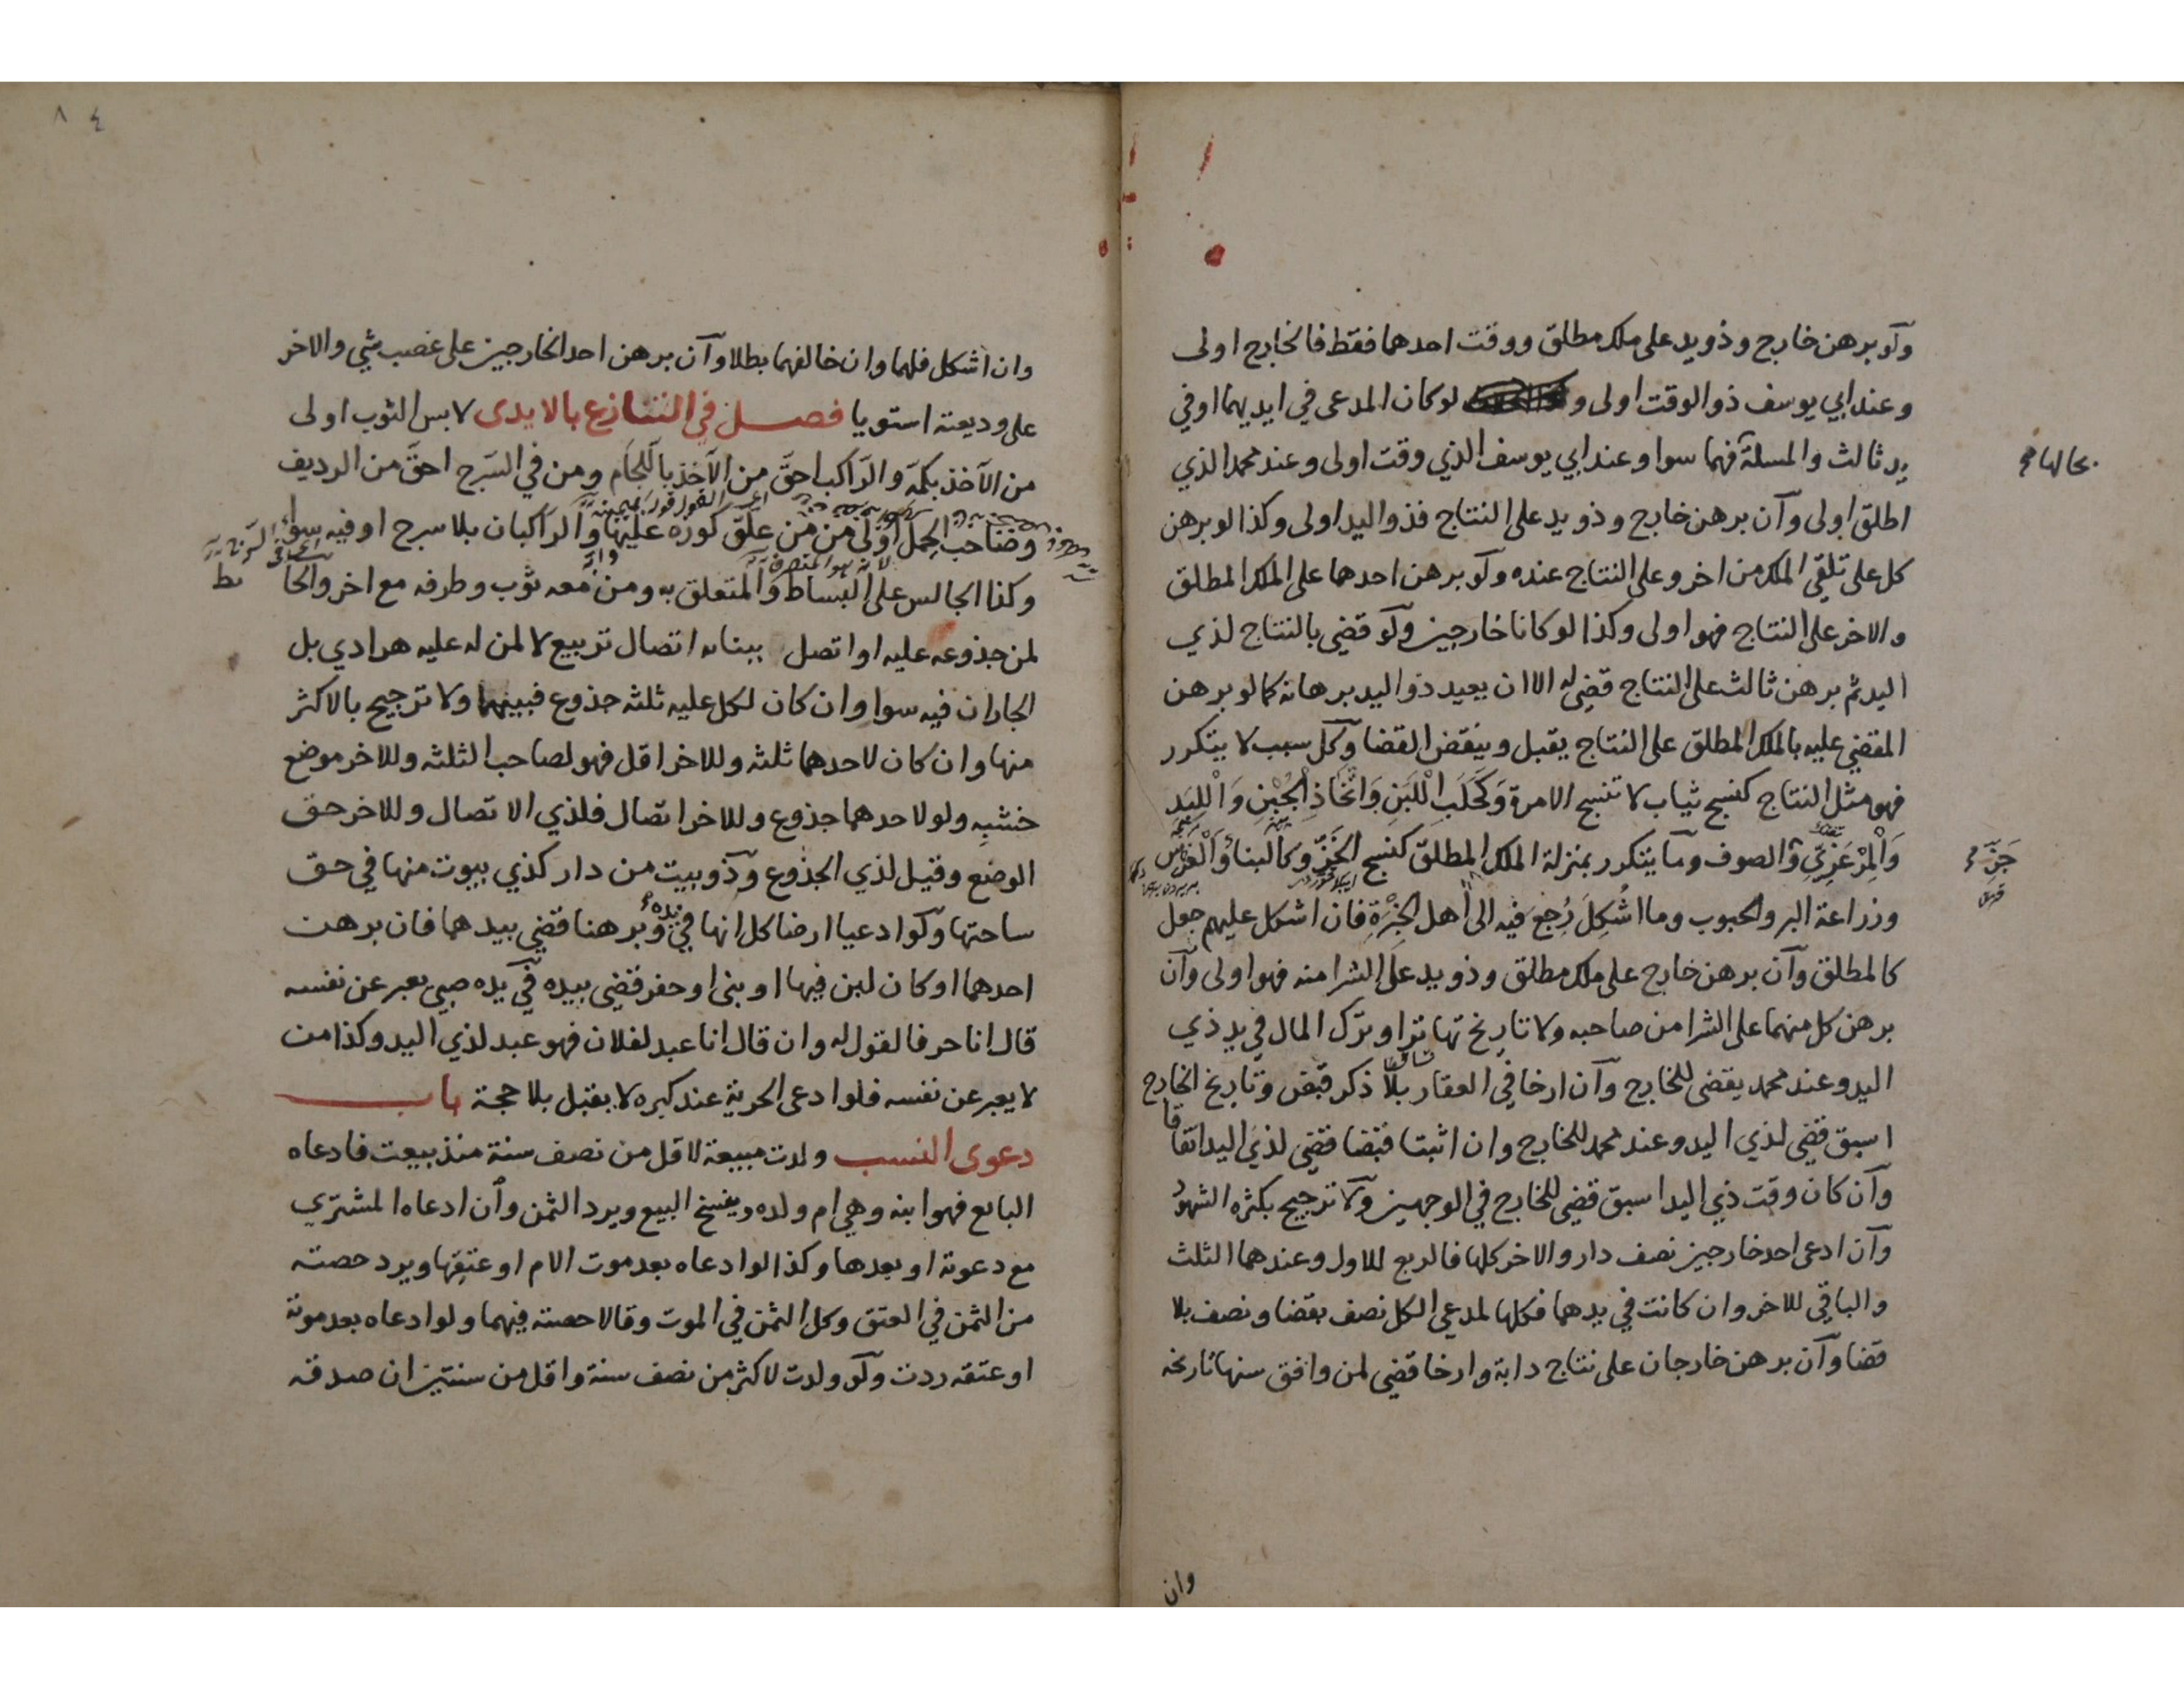 ولو برهن خارج وذويد على ملك مطلق ووقت احدهما فقط فالخارج اولى
وعند ابي يوسف ذو الوقت اولى و لو كان المدعى في ايديهما او في
يد ثالث والمسلة فهما سوا وعند ابي يوسف الذي وقت اولى وعند محمد الذي
بحالها صح
اطلق اولى وان برهن خارج وذويد على النتاج فذو اليد اولى وكذا لو برهن
كل على تلقي الملك من اخر وعلى النتاج عنده ولو برهن احدهما على الملك المطلق
والاخر على النتاج فهو اولى وكذا لو كانا خارجين ولو قضى بالنتاج لذي
اليد ثم برهن ثالث على النتاج قضى له الا ان يعيد ذو اليد برهانه كما لو برهن
المقضي عليه بالملك المطلق على النتاج يقبل وينقض القضا وكل سبب لا يتكرر
فهو مثل النتاج كنسج ثياب لا تنسج الا مرة وَكَحَلَبِ اللَّبَنِ وَاتَّخَاذِ الجُبْنِ وَاللِّبَدِ
وَالْمِرْعَزِّيِ والصوف وما يتكرر بمنزلة الملك المطلق كنسج الخَزِّ وكالبناءُ وَالْغَرْس
جَزّ صح
وزراعة البر والحبوب وما اشْكِلَ رُجِعَ فيه الى اهل الخِبْرَةِ فان اشكل عليهم جعل
كالمطلق وان برهن خارج على ملك مطلق وذويد على الشرا منه فهو اولى وان
برهن كل منهما على الشرا من صاحبه ولا تاريخ تهاترا وترك المال في يد ذي
اليد وعند محمد يقضى للخارج وان ارخا في العقار بلا ذكر قبض وتاريخ الخارج
اسبق قضي لذي اليد وعند محمد للخارج وان اثبتا قبضا قضي لذي اليد اتفاقا
وان كان وقت ذي اليد اسبق قضي للخارج في الوجهين ولا ترجيح بكثره الشهود
وان ادعى احد خارجين نصف دار والاخر كلها فالربع للاول وعندهما الثلث
والباقي للاخر وان كانت في يدهما فكلها لمدعي الكل نصف بقضا ونصف بلا
قضا وان برهن خارجان على نتاج دابة وارخا قضي لمن وافق سنها تاريخه
وان
٨٤
وان اشكل فلهما وان خالفهما بطلا وان برهن احد الخارجين على غصب شي والاخر
على وديعته استويا فصل في التنازع بالايدى لابس الثوب اولى
من الآخذ بكمّه والراكب احقّ من الآخذ باللّجام ومن في السَرج احقّ من الرديف
وصاحب الحِمل اولى من من علّق كوزه عليها والراكبان بلا سرج او فيه سواء
وكذا الجالس على البساط والمتعلق به ومن معه ثوب وطرفه مع اخر والحا ئط
لمن جذوعه عليه او اتصل ببنائه اتصال تربيع لا لمن له عليه هرادي بل
الجاران فيه سوا وان كان لكل عليه ثلثه جذوع فبينهما ولا ترجيح بالاكثر
منها وان كان لاحدهما ثلثه وللاخر اقل فهو لصاحب الثلثه وللاخر موضع
خشبِه ولو لاحدهما جذوع وللاخر اتصال فلذي الاتصال وللاخر حق
الوضع وقيل لذي الجذوع وذو بيت من دار كذي بيوت منها في حق
ساحتها ولو ادعيا ارضا كل انها في يده وبرهنا قضي بيدهما فان برهن
احدهما او كان لبن فيها او بنى او حفر قضي بيده في يده صبي يعبر عن نفسه
قال انا حر فالقول له وان قال انا عبد لفلان فهو عبد لذي اليد وكذا من
لا يعبر عن نفسه فلو ادعى الحرية عند كبره لا يقبل بلا حجة باب
دعوى النسب ولدت مبيعة لاقل من نصف سنة منذ بيعت فادعاه
البايع فهو ابنه وهي ام ولده ويفسخ البيع ويرد الثمن وان ادعاه المشتري
مع دعوته او بعدها وكذا لو ادعاه بعد موت الام او عتقها ويرد حصته
من الثمن في العتق وكل الثمن في الموت وقالا حصته فيهما ولو ادعاه بعد موته
او عتقه ردت ولو ولدت لاكثر من نصف سنة واقل من سنتين ان صدقه